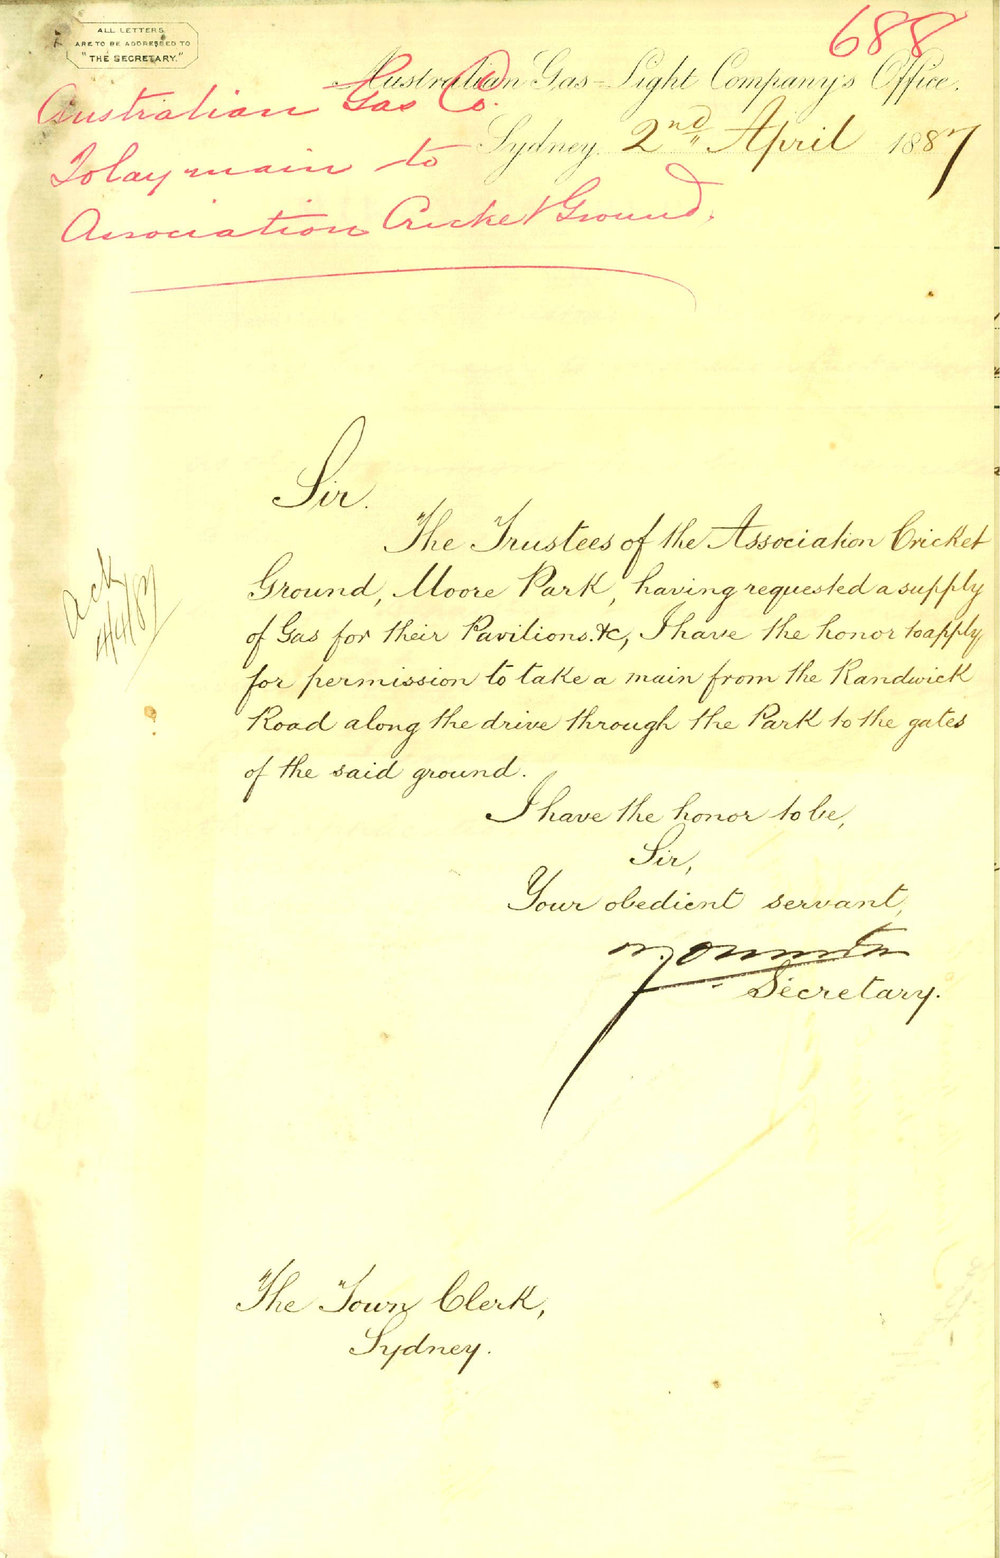 ALL LETTERS
ARE TO BE ADDRESSED TO
"THE SECRETARY."
688
Australian Gas-Light Company's Office.
Sydney, 2nd April 1887
Australian Gas Co.
To lay main to
Association Cricket Ground.
Sir.
The Trustees of the Association Cricket
Ground, Moore Park, having requested a supply
of Gas for their Pavilions. &c, I have the honor to apply
for permission to take a main from the Randwick
Road along the drive through the Park to the gates
of the said ground.
Ack
4/4/87
I have the honor to be,
Sir,
Your obedient servant,
Secretary.
The Town Clerk,
Sydney.